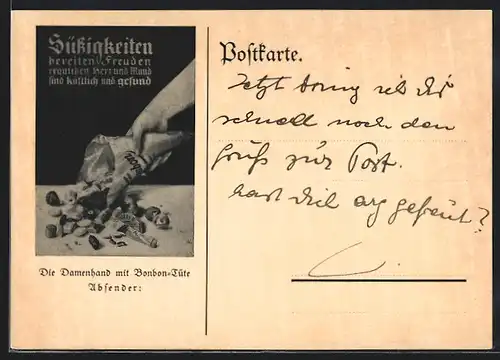 Süßigkeiten
bereiten Freuden
erquicken Herz und Mund
sind köstlich und gesund
Die Damenhand mit Bonbon-Tüte
Absender:
Postkarte.
Jetzt bring ich dir
schnell noch den
Gruß zur Post.
hast dich arg gefreut?